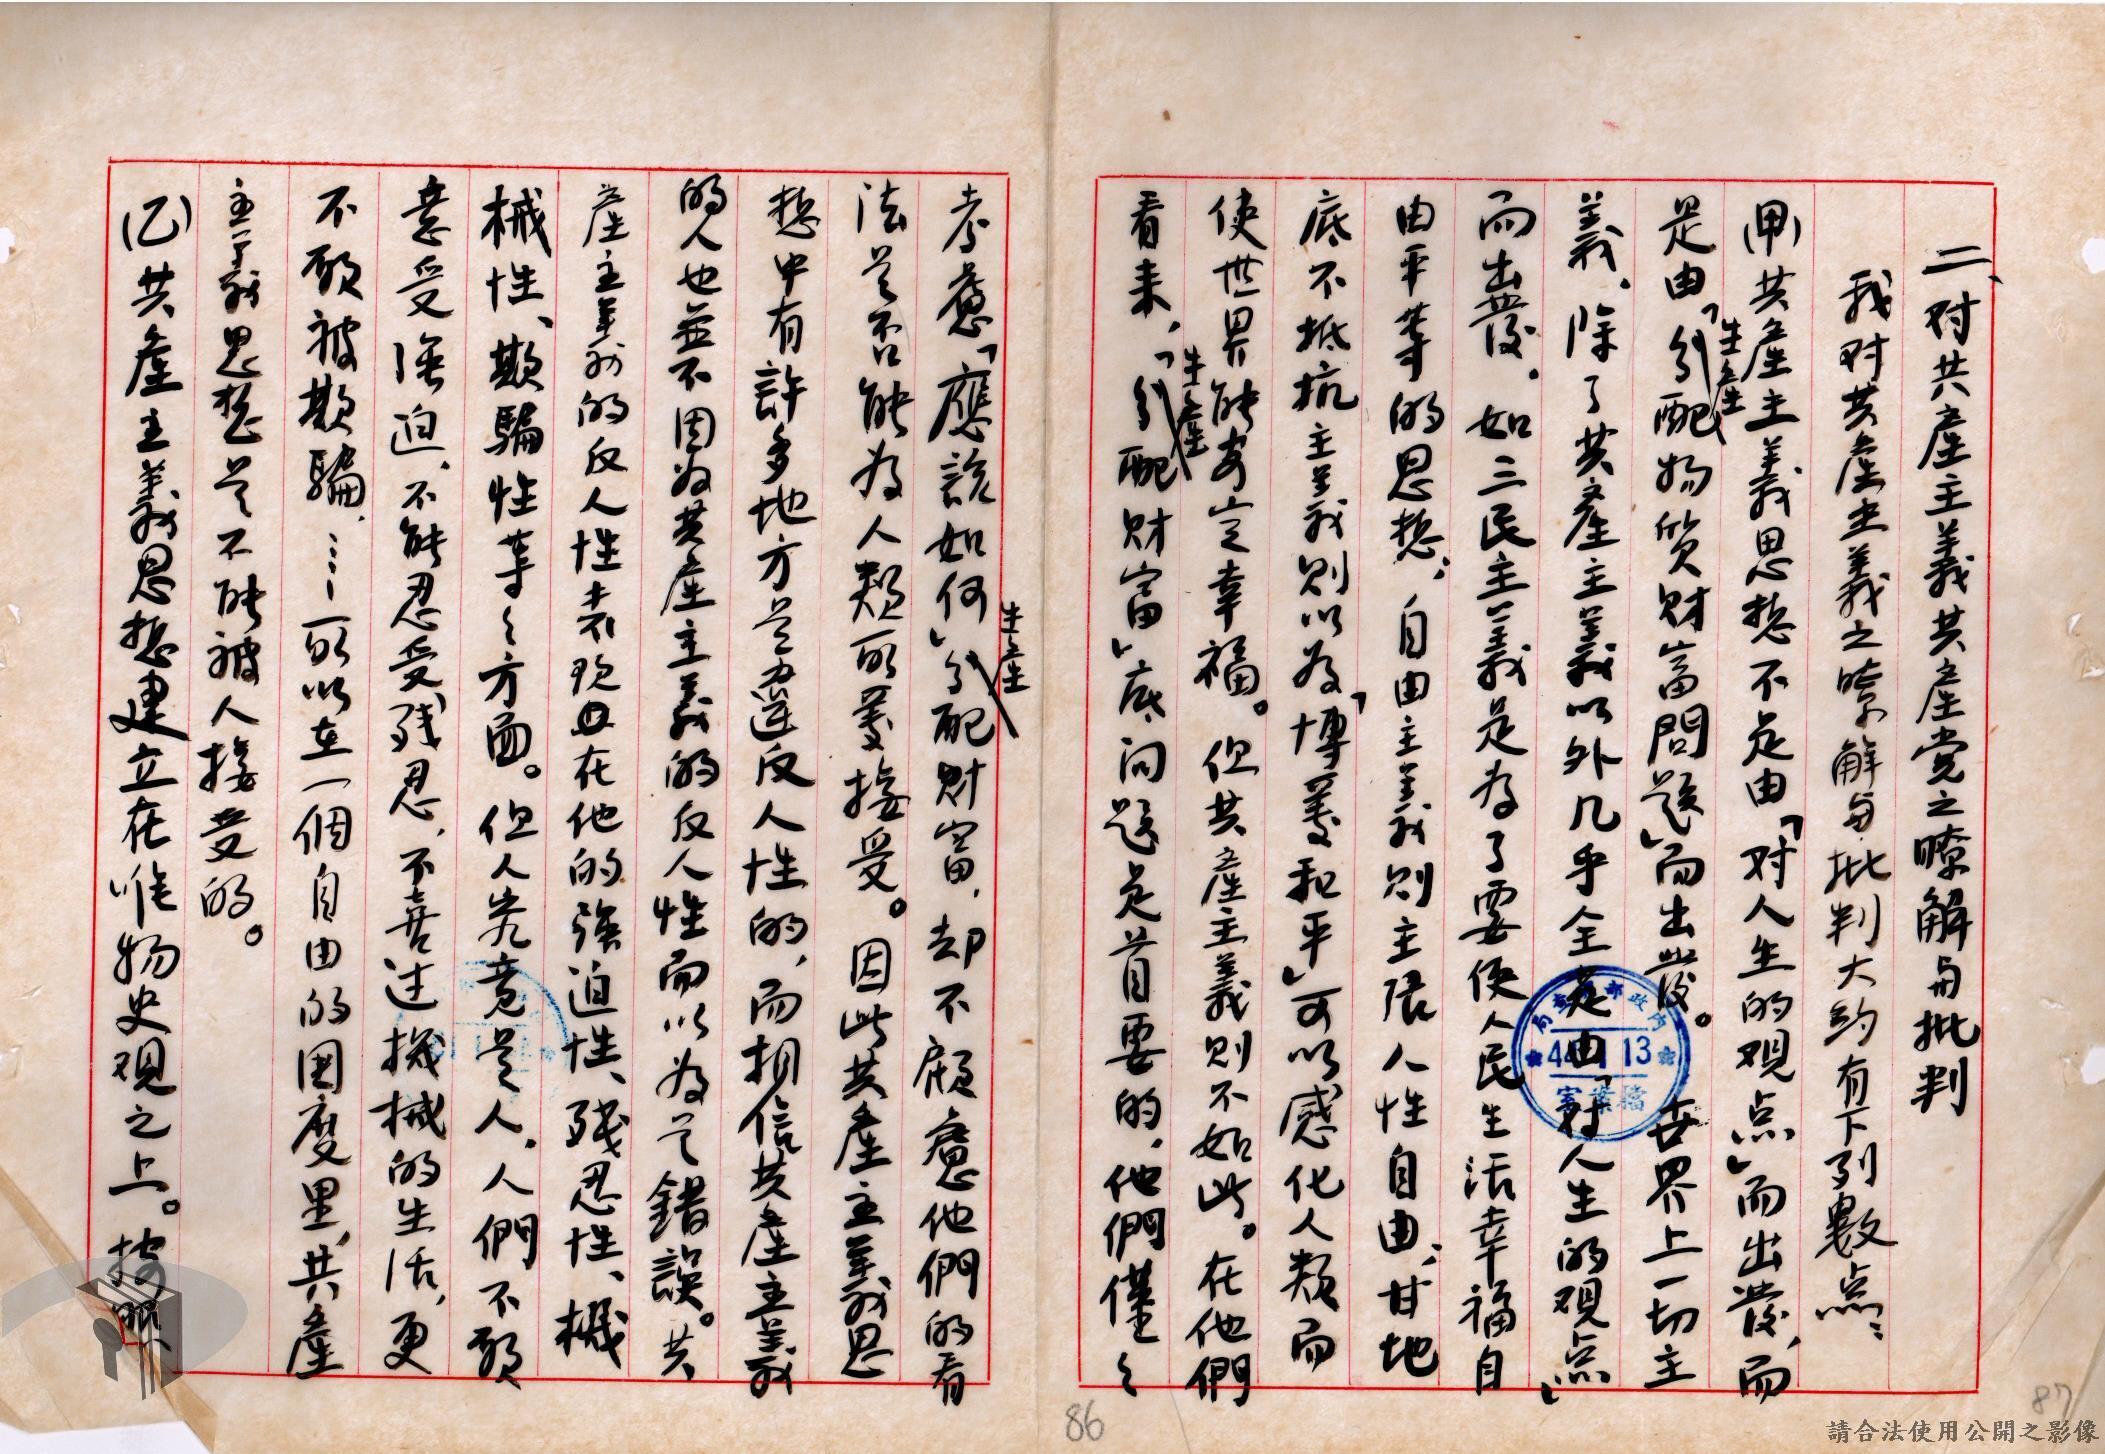 二、对共產主義共產党之暸解与批判
我对共產主義之暸解与批判大約有下列數点：
(甲)共產主義思想不是由「对人生的观点」而出發，而
是由「生產分配物質財富問題」而出發。世界上一切主
義，除了共產主義以外几乎全是由「对人生的观点」
而出發。如三民主義是为了要使人民生活幸福自
由平等的思想；自由主義則主張人性自由；甘地
底不抵抗主義則以为「博愛和平」可以感化人類而
使世界能安定幸福。但共產主義則不如此。在他們
看来，「生產分配財富」底问题是首要的，他們僅々
考慮「應該如何」生產分配財富，却不顧慮他們的看
法是否能为人類所愛接受。因此共產主義思
想中有許多地方是違反人性的，而相信共產主義
的人也並不因为共產主義的反人性而以为是錯誤。共
產主義的反人性表现在他的強迫性、残忍性、機
械性、欺騙性等々方面。但人究竟是人，人們不願
意受強迫、不能忍受残忍，不喜过機械的生活，更
不願被欺騙，……所以在一個自由的國度里，共產
主義思想是不能被人接受的。
(乙)共產主義思想建立在唯物史观之上。按照
44 13
86
87
請合法使用公開之影像